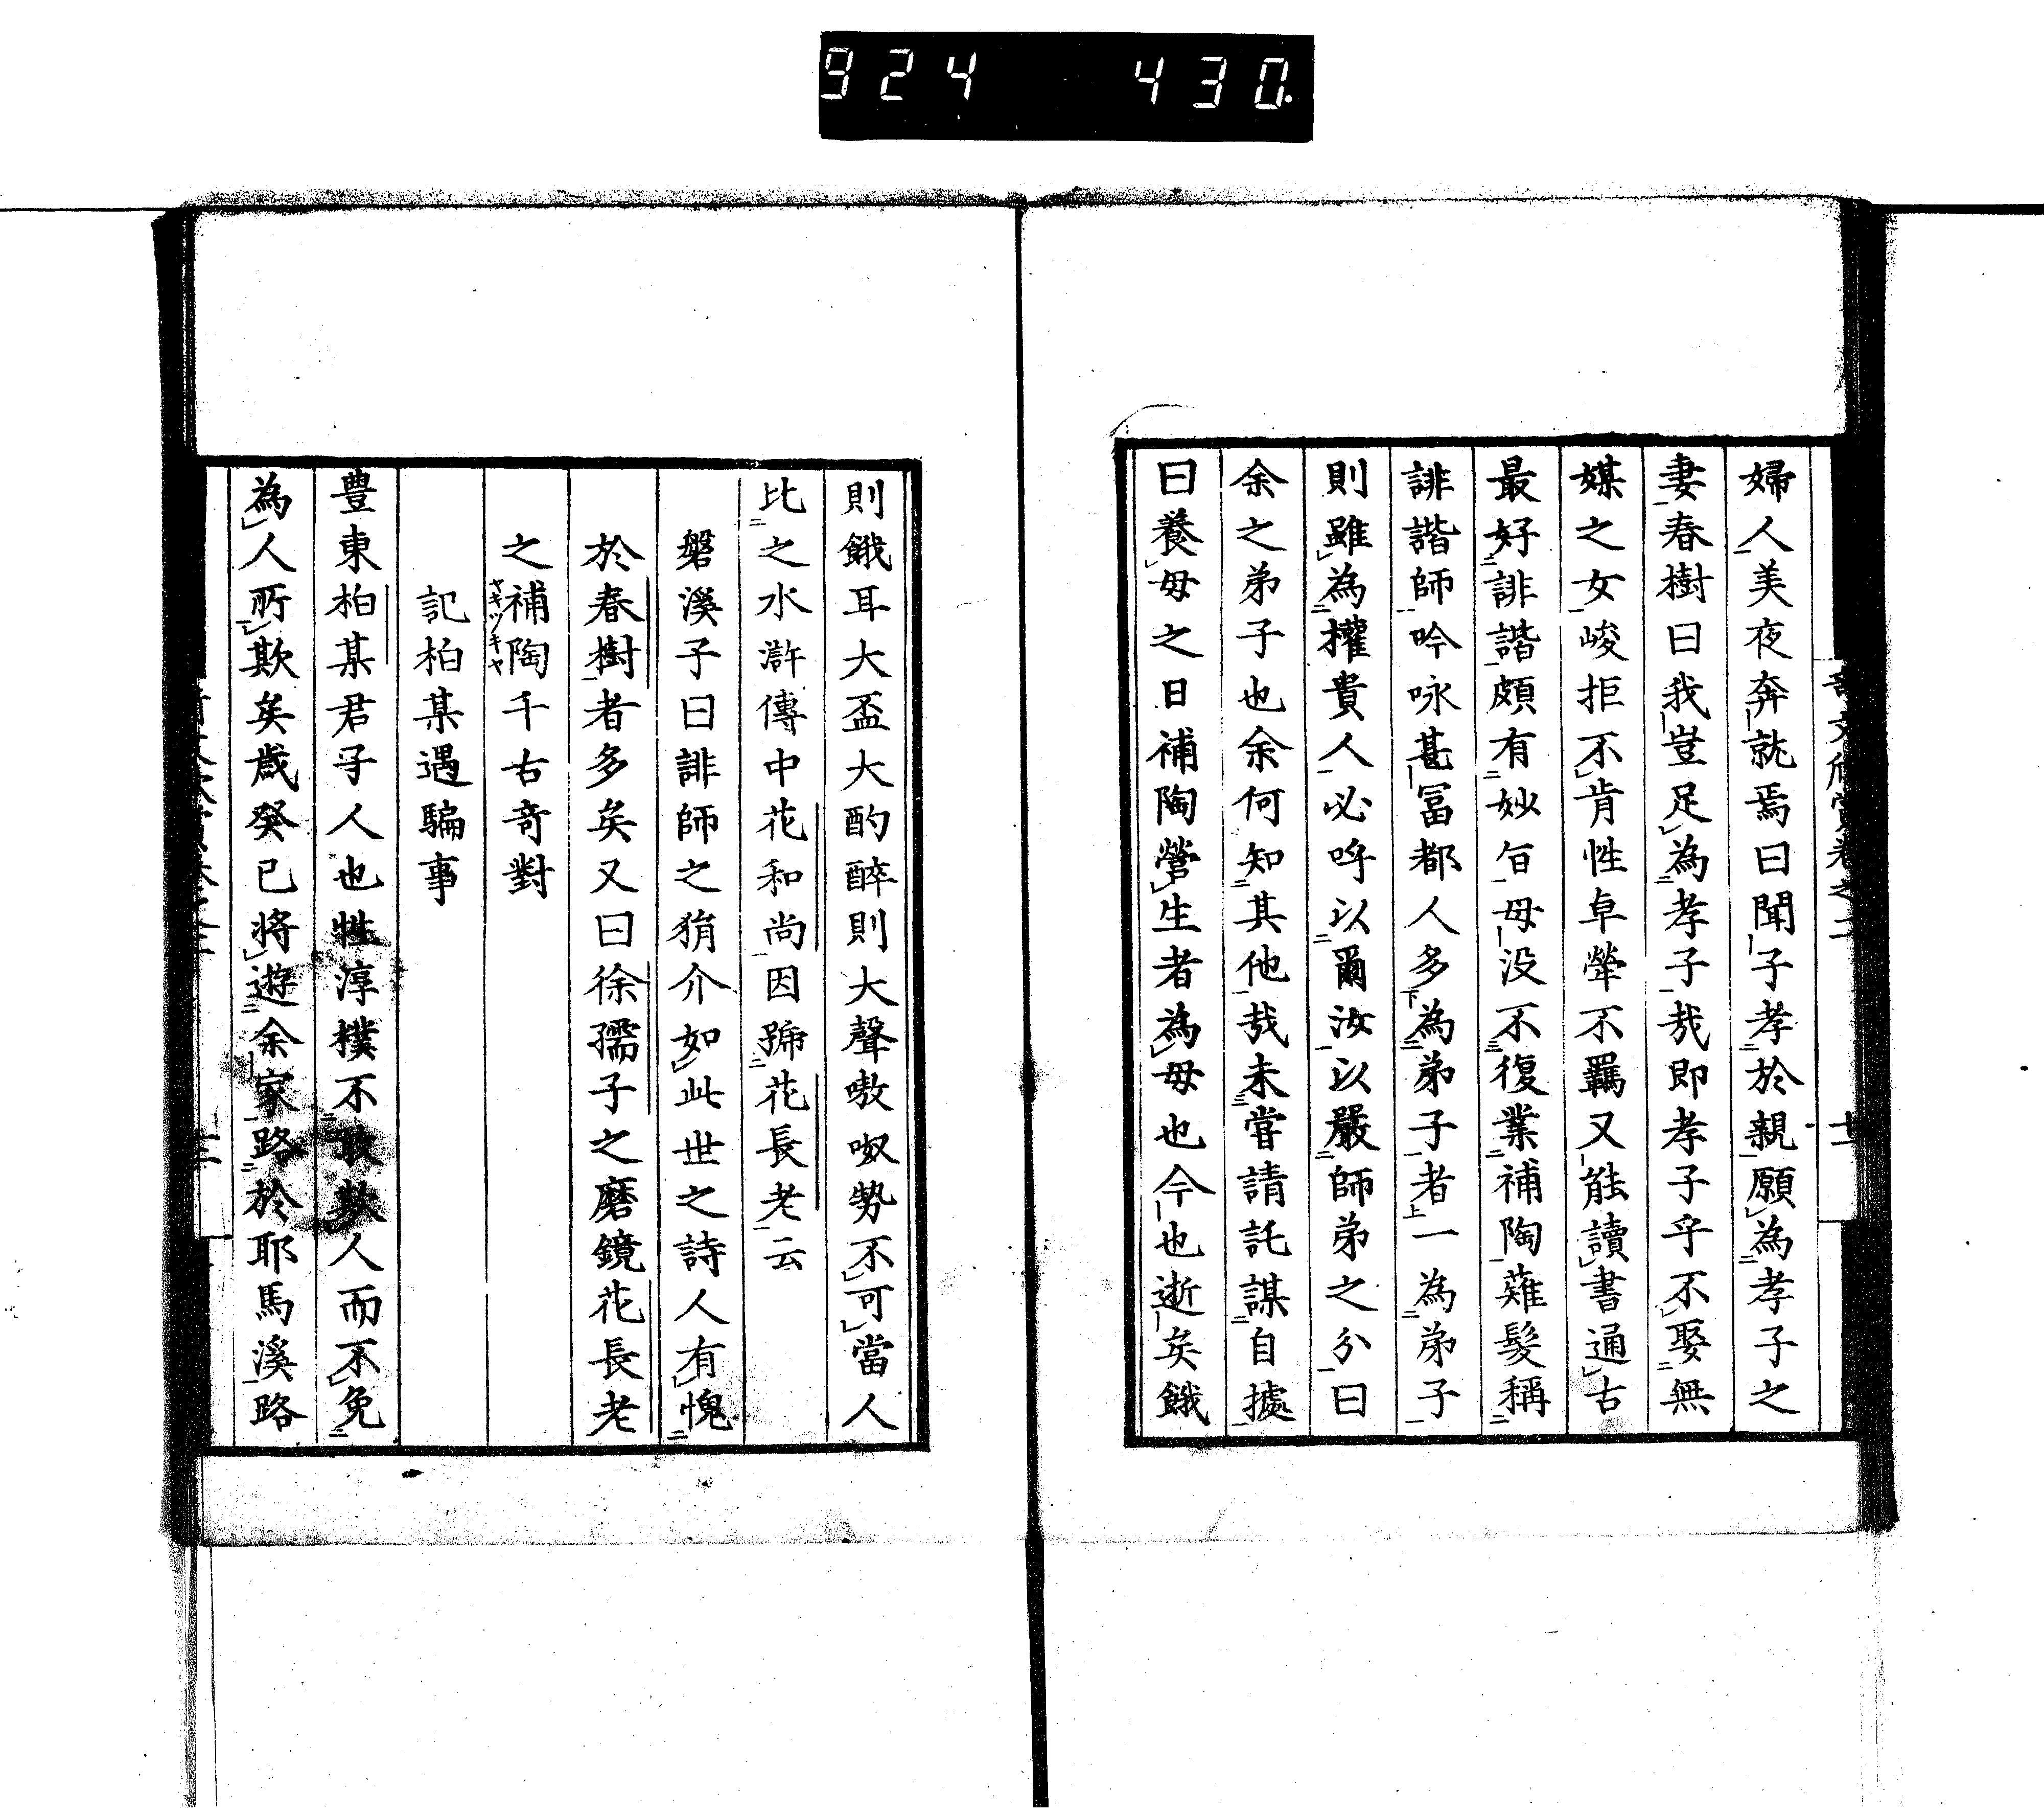 924 430.
婦人美夜奔就焉曰聞子孝於親願為孝子之
妻春樹曰我豈足為孝子哉即孝子乎不娶無
媒之女峻拒不肯性卓犖不羈又能讀書通古
最好誹諧頗有妙句母没不復業補陶薙髮稱
誹諧師吟咏甚冨都人多為弟子者一為弟子
則雖為權貴人必呼以爾汝以嚴師弟之分曰
余之弟子也余何知其他哉未嘗請託謀自據
曰養母之日補陶營生者為母也今也逝矣餓
則餓耳大盃大酌醉則大聲嗷呶勢不可當人
比之水滸傳中花和尚因號花長老云
磐溪子曰誹師之狷介如此世之詩人有愧
於春樹者多矣又曰徐孺子之磨鏡花長老
之補陶千古奇對
ヤキツキヤ
記柏某遇騙事
豊東柏某君子人也性淳樸不敢欺人而不免
為人所欺矣歲癸已將遊余家路於耶馬溪路